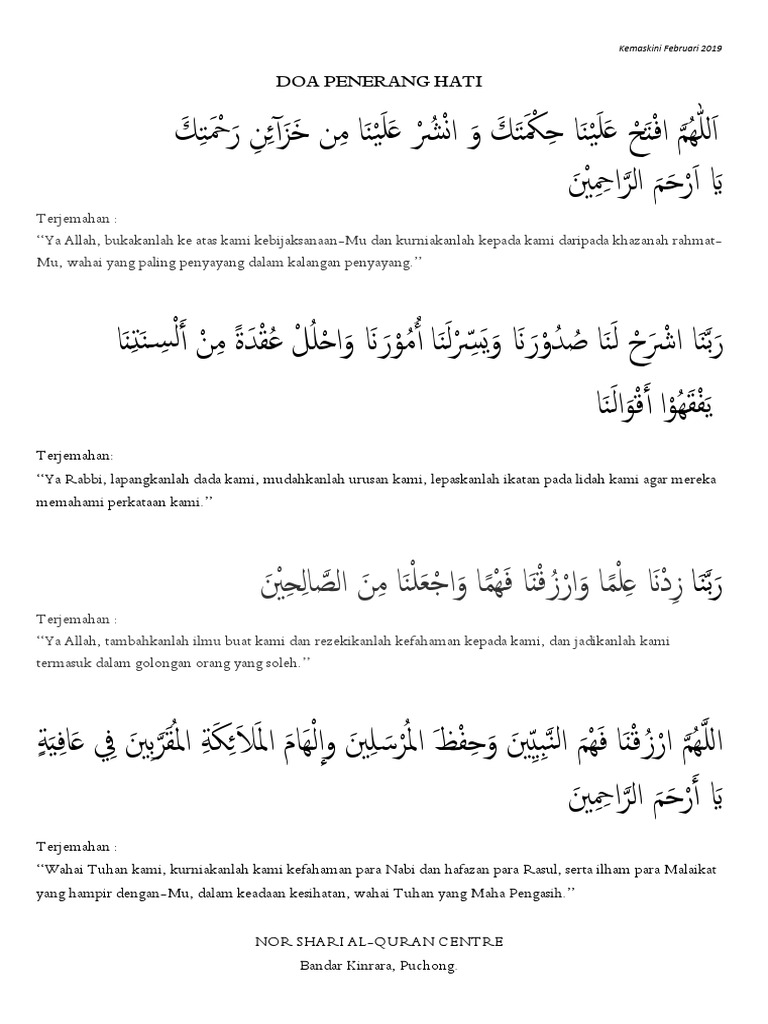 Kemaskini Februari 2019
DOA PENERANG HATI
اَللّٰهُمَّ افْتَحْ عَلَيْنَا حِكْمَتَكَ وَ انْشُرْ عَلَيْنَا مِن خَزَآئِنِ رَحْمَتِكَ
يَا اَرْحَمَ الرَّاحِمِيْنَ
Terjemahan :
“Ya Allah, bukakanlah ke atas kami kebijaksanaan-Mu dan kurniakanlah kepada kami daripada khazanah rahmat-
Mu, wahai yang paling penyayang dalam kalangan penyayang.”
رَبَّنَا اشْرَحْ لَنَا صُدُوْرَنَا وَيَسِّرْلَنَا أُمُوْرَنَا وَاحْلُلْ عُقْدَةً مِنْ أَلْسِنَتِنَا
يَفْقَهُوْا أَقْوَالَنَا
Terjemahan:
“Ya Rabbi, lapangkanlah dada kami, mudahkanlah urusan kami, lepaskanlah ikatan pada lidah kami agar mereka
memahami perkataan kami.”
رَبَّنَا زِدْنَا عِلْمًا وَارْزُقْنَا فَهْمًا وَاجْعَلْنَا مِنَ الصَّالِحِيْنَ
Terjemahan :
“Ya Allah, tambahkanlah ilmu buat kami dan rezekikanlah kefahaman kepada kami, dan jadikanlah kami
termasuk dalam golongan orang yang soleh.”
اللَّهُمَّ ارْزُقْنَا فَهْمَ النَّبِيِّينَ وَحِفْظَ المُرْسَلِينَ وإِلْهَامَ المَلَائِكَةِ المُقَرَّبِينَ فِي عَافِيَةٍ
يَا أَرْحَمَ الرَّاحِمِينَ
Terjemahan :
“Wahai Tuhan kami, kurniakanlah kami kefahaman para Nabi dan hafazan para Rasul, serta ilham para Malaikat
yang hampir dengan-Mu, dalam keadaan kesihatan, wahai Tuhan yang Maha Pengasih.”
NOR SHARI AL-QURAN CENTRE
Bandar Kinrara, Puchong.